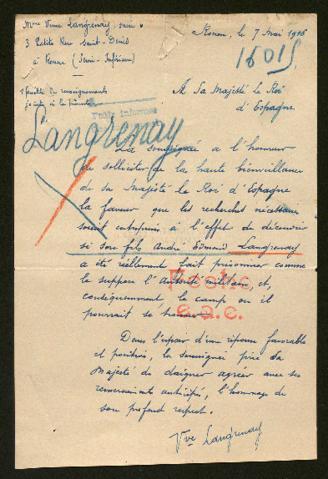 Mme Veuve Langrenay,
3 Petite Rue Saint-Denis
à Rouen (Seine-Inférieure)
Rouen, le 7 Mai 1916
15015
A Sa Majesté le Roi
d'Espagne
feuille de renseignements
jointe à la
Langrenay
La soussignée a l'honneur
de solliciter de la haute bienveillance
de Sa Majesté le Roi d'Espagne
la faveur, que les recherches nécessaires
soient entreprises à l'effet de découvrir
si son fils, André Edmond Langrenay
a été réellement fait prisonnier comme
le suppose l'Autorité militaire, et,
conséquemment, le camp où il
pourrait se trouver.
Dans l'espoir d'une réponse favorable
et positive, la soussignée prie Sa
Majesté de daigner agréer avec ses
remerciements anticipés, l'hommage de
son profond respect.
Vve Langrenay